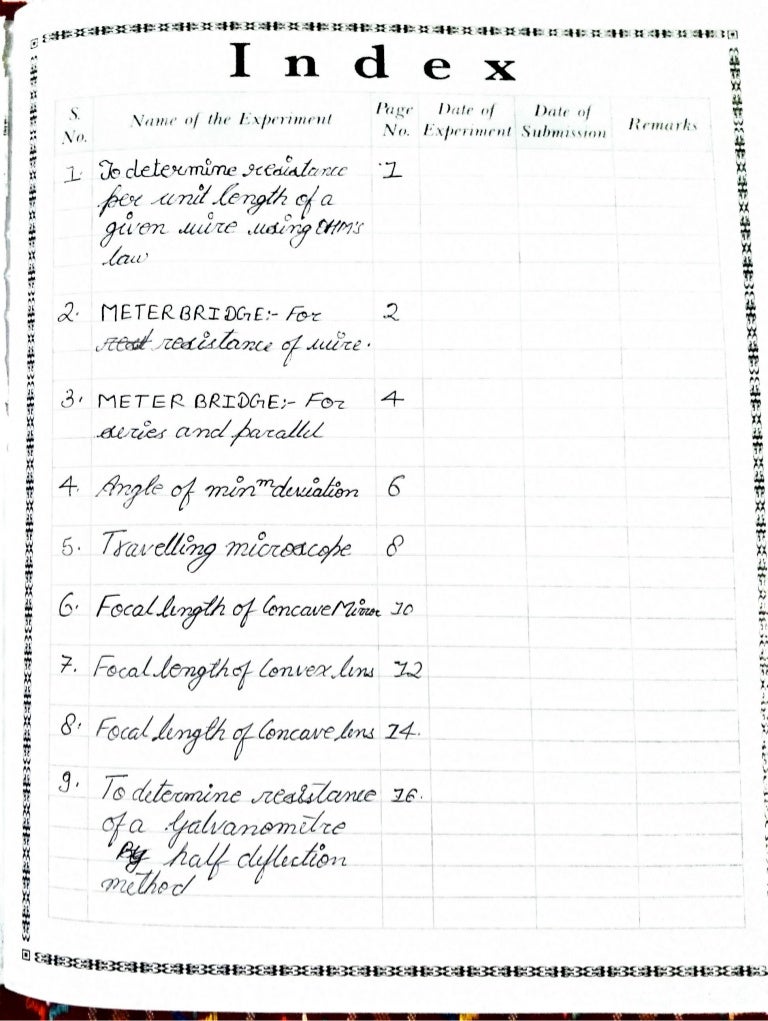 Index
S. No. Name of the Experiment Page No. Date of Experiment Date of Submission Remarks
1. To determine resistance 1
per unit length of a
given wire using OHM's
law
2. METER BRIDGE:- For 2
resistance of wire.
3. METER BRIDGE:- For 4
series and parallel
4. Angle of minᵐ deviation 6
5. Travelling microscope 8
6. Focal length of Concave Mirror 10
7. Focal length of Convex lens 12
8. Focal length of Concave lens 14.
9. To determine resistance 16.
of a Galvanometre
By half deflection
method